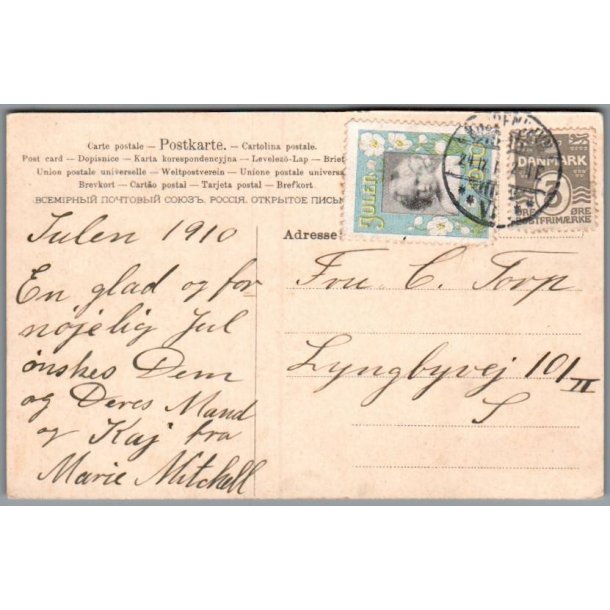 Carte postale – Postkarte. – Cartolina postale.
Post card – Dopisnice – Karta korespondencyjna – Levelező-Lap – Brief
Union postale universelle – Weltpostverein – Unione postale universa
Brevkort – Cartão postal – Tarjeta postal – Brefkort.
ВСЕМІРНЫЙ ПОЧТОВЫЙ СОЮЗЪ. РОССІЯ. ОТКРЫТОЕ ПИСЬМ
Julen 1910
En glad og for
nøjelig Jul
ønskes Dem
og Deres Mand
og Kaj fra
Marie Mitchell
JULEN
DANMARK
3
ØRE ØRE
POSTFRIMÆRKE
Adresse
Fru C. Torp
Lyngbyvej 101/II